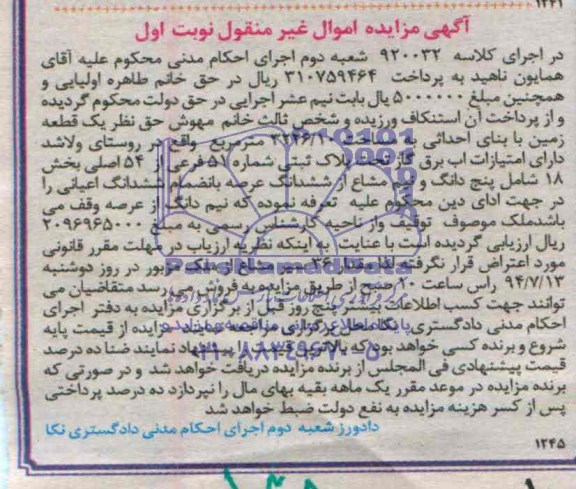 ۱۲۴۱
آگهی مزایده اموال غیر منقول نوبت اول
در اجرای کلاسه ۹۲۰۰۳۲ شعبه دوم اجرای احکام مدنی محکوم علیه آقای
همایون ناهید به پرداخت ۳۱۰۷۵۹۴۶۴ ریال در حق خانم طاهره اولیایی و
همچنین مبلغ ۵۰۰۰۰۰۰ یال بابت نیم عشر اجرایی در حق دولت محکوم گردیده
و از پرداخت آن استنکاف ورزیده و شخص ثالث خانم مهوش حق نظر یک قطعه
زمین با بنای احداثی به مساحت مترمربع واقع در روستای ولاشد
دارای امتیازات اب برق گاز تحت پلاک ثبتی شماره ۵۱ فرعی از ۵۴ اصلی بخش
۱۸ شامل پنج دانگ و نیم مشاع از ششدانگ عرصه بانضمام ششدانگ اعیانی را
در جهت ادای دین محکوم علیه تعرفه نموده که نیم دانگ از عرصه وقف می
باشدملک موصوف توقیف واز ناحیه کارشناس رسمی به مبلغ ۲۰۹۶۹۶۵۰۰۰
ریال ارزیابی گردیده است با عنایت به اینکه نظریه ارزیاب در مهلت مقرر قانونی
مورد اعتراض قرار نگرفته لذا مقدار ۳۶ مشاع از ملک مزبور در روز دوشنبه
۹۴/۷/۱۳ راس ساعت ۱۰ صبح از طریق مزایده به فروش می رسد متقاضیان می
توانند جهت کسب اطلاعات بیشتر پنج روز قبل از برگزاری مزایده به دفتر اجرای
احکام مدنی دادگستری نکا محل برگزاری مراجعه نمایند مزایده از قیمت پایه
شروع و برنده کسی خواهد بود که بالاترین قیمت را پیشنهاد نمایند ضنا ده درصد
قیمت پیشنهادی فی المجلس از برنده مزایده دریافت خواهد شد و در صورتی که
برنده مزایده در موعد مقرر یک ماهه بقیه بهای مال را نپردازد ده درصد پرداختی
پس از کسر هزینه مزایده به نفع دولت ضبط خواهد شد
دادورز شعبه دوم اجرای احکام مدنی دادگستری نکا
۱۲۴۵
ParsNamadData
۰۲۱-۸۸۳۴۹۶۷۰-۵